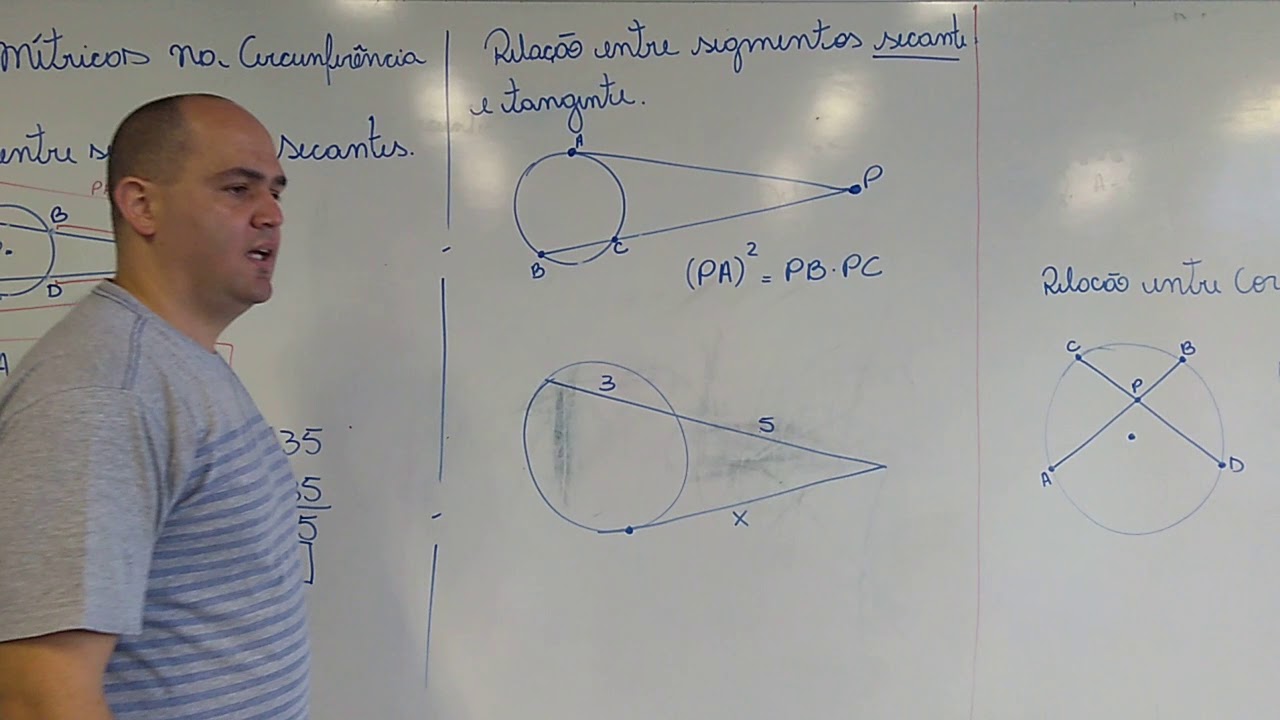 Métricas na Circunferência
entre s secantes.
P
B
D
A
35
35
5
Relação entre segmentos secante
e tangente.
A
P
B
C
(PA)² = PB·PC
3
5
x
Relação entre Cor
C
B
P
A
D